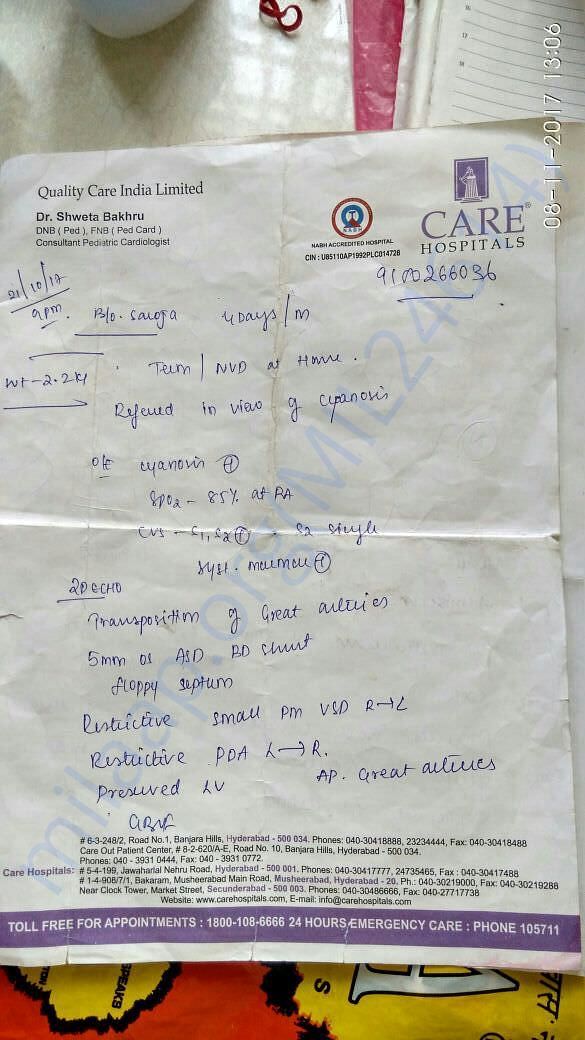 16
17
18
08-11-2017 13:06
Quality Care India Limited
Dr. Shweta Bakhru
DNB ( Ped ), FNB ( Ped Card )
Consultant Pediatric Cardiologist
NABH
NABH ACCREDITED HOSPITAL
CIN : U85110AP1992PLC014728
CARE®
HOSPITALS
9100266036
21/10/17
9pm.
B/o. Saroja 4Days/m
Wt-2.2kg
Term / NVD at Home.
Refered in view of cyanosis
o/e cyanosis +
SPO2 - 85% at RA
CVS - S1, S2 + - S2 single
Syst. murmur +
2D ECHO
Transposition of Great arteries
5mm os ASD BD shunt
floppy septum
Restrictive small pm VSD R→L
Restrictive PDA L→R.
Preserved LV
AP. Great arteries
milaap.org
# 6-3-248/2, Road No.1, Banjara Hills, Hyderabad - 500 034. Phones: 040-30418888, 23234444, Fax: 040-30418488
Care Out Patient Center, # 8-2-620/A-E, Road No. 10, Banjara Hills, Hyderabad - 500 034.
Phones: 040 - 3931 0444, Fax: 040 - 3931 0772.
Care Hospitals: # 5-4-199, Jawaharlal Nehru Road, Hyderabad - 500 001. Phones: 040-30417777, 24735465, Fax : 040-30417488
# 1-4-908/7/1, Bakaram, Musheerabad Main Road, Musheerabad, Hyderabad - 20. Ph.: 040-30219000, Fax: 040-30219288
Near Clock Tower, Market Street, Secunderabad - 500 003. Phones: 040-30486666, Fax: 040-27717738
Website: www.carehospitals.com, E-mail: info@carehospitals.com
TOLL FREE FOR APPOINTMENTS : 1800-108-6666 24 HOURS EMERGENCY CARE : PHONE 105711
SPEAKS
S